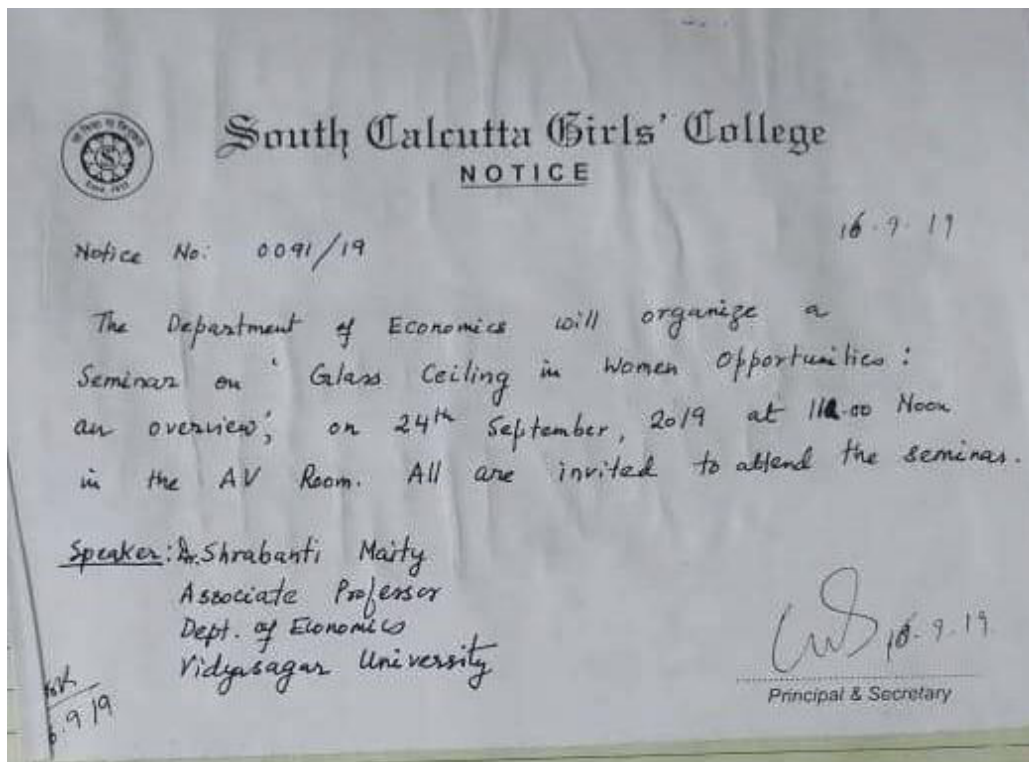 South Calcutta Girls' College
NOTICE
16.9.19
Notice No: 0091/19
The Department of Economics will organize a
Seminar on 'Glass Ceiling in Women Opportunities:
an overview', on 24th September, 2019 at Noon
in the AV Room. All are invited to attend the seminar.
Speaker: Dr. Shrabanti Maity
Associate Professor
Dept. of Economics
Vidyasagar University
16.9.19
Principal & Secretary